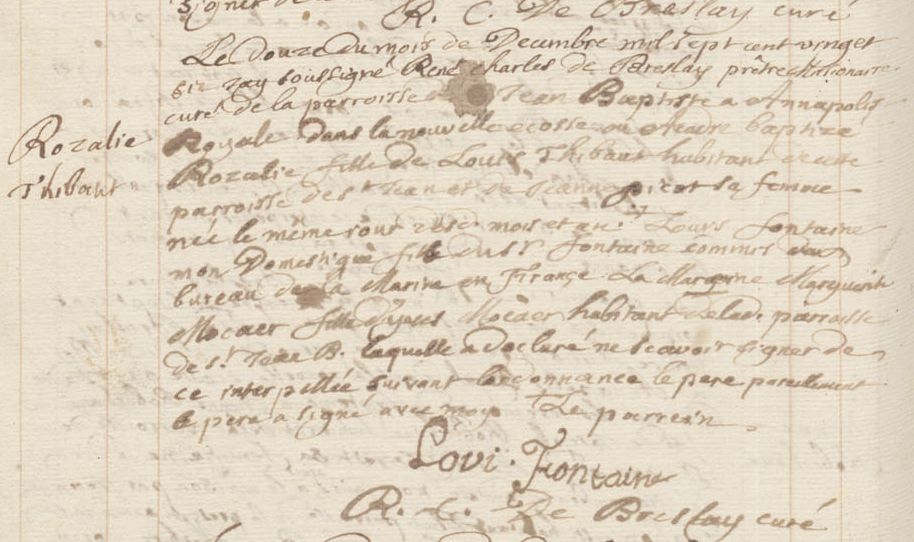 signer de
R. C. De Breslay curé
Le douze du mois de Decembre mil sept cent vinget
six jay soussigné René charles de Breslay prêtre missionaire
curé de la parroisse de St Jean Baptiste a Annapolis
Royale dans la nouvelle ecosse ou Acadie baptizé
Rozalie
Thibaut
Rozalie fille de Louis Thibaut habitant de cette
parroisse de st Jean et de Jeanne picot sa femme
née le même jour desd. mois et an Louis fontaine
mon Domestique fils du Sr fontaine commis
bureau de la Marine en France La Maraine Marguerite
Mocaer fille d'yves Mocaer habitant de lad. parroisse
de St. Jean B. laquelle a declaré ne scavoir signer de
ce interpellée suivant lordonnance le pere pareillement
le pere a signé avec moy Le parrein
Lovi. Fontaine
R. C. De Breslay curé